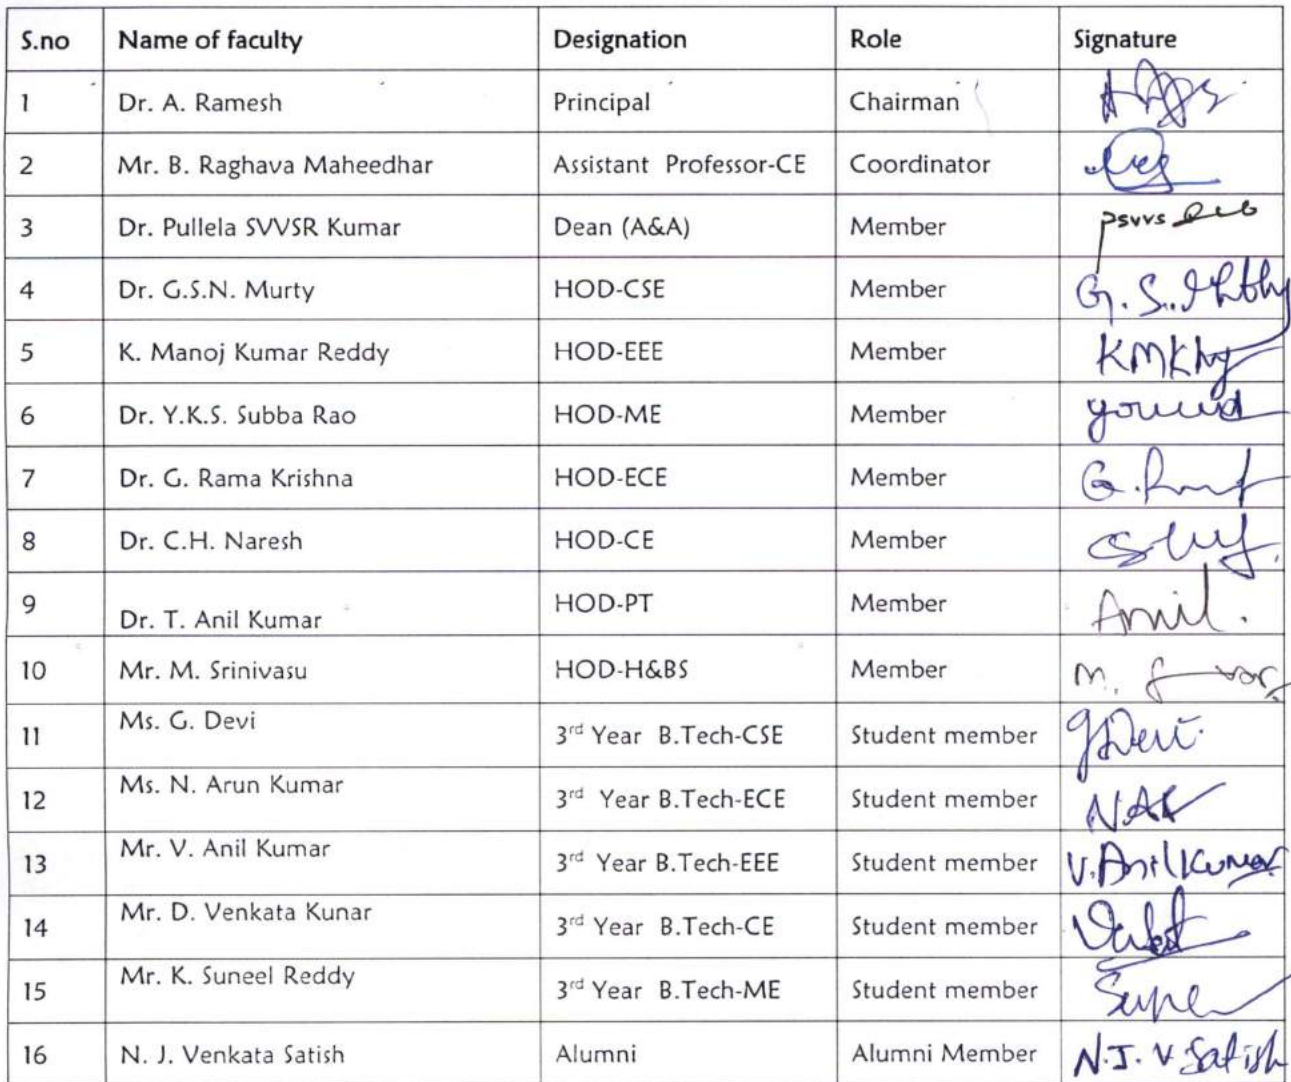 S.no Name of faculty Designation Role Signature
1 Dr. A. Ramesh Principal Chairman
2 Mr. B. Raghava Maheedhar Assistant Professor-CE Coordinator
3 Dr. Pullela SVVSR Kumar Dean (A&A) Member psvvs
4 Dr. G.S.N. Murty HOD-CSE Member G. S.
5 K. Manoj Kumar Reddy HOD-EEE Member
6 Dr. Y.K.S. Subba Rao HOD-ME Member
7 Dr. G. Rama Krishna HOD-ECE Member G.
8 Dr. C.H. Naresh HOD-CE Member
9 Dr. T. Anil Kumar HOD-PT Member Anil.
10 Mr. M. Srinivasu HOD-H&BS Member M.
11 Ms. G. Devi 3rd Year B.Tech-CSE Student member GDevi.
12 Ms. N. Arun Kumar 3rd Year B.Tech-ECE Student member NAK
13 Mr. V. Anil Kumar 3rd Year B.Tech-EEE Student member V.Anil Kumar
14 Mr. D. Venkata Kunar 3rd Year B.Tech-CE Student member
15 Mr. K. Suneel Reddy 3rd Year B.Tech-ME Student member
16 N. J. Venkata Satish Alumni Alumni Member N.J. V Satish